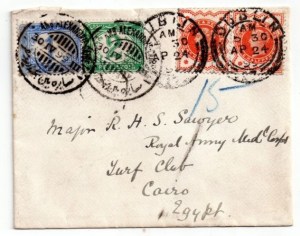 DUBLIN
AM
5 30
AP 24
DUBLIN
AM
5 30
AP 24
15
Major R. H. S. Sawyer
Royal Army Medl Corps
Turf Club
Cairo
Egypt.